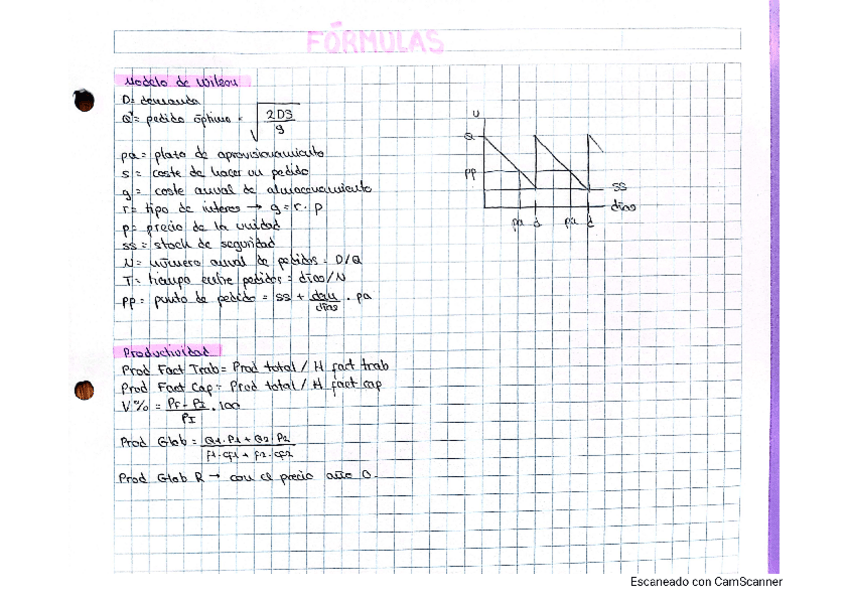 FÓRMULAS
Modelo de Wilson
D= demanda
Q*= pedido óptimo = √ 2DS / g
pa = plato de aprovisionamiento
s = coste de hacer un pedido
g = coste anual de almacenamiento
r = tipo de interes → g = r · p
p = precio de la unidad
ss = stock de seguridad
N = número anual de pedidos = D/Q
T = tiempo entre pedidos = días/N
pp = punto de pedido = ss + dem/días · pa
U
Q
pp
ss
días
pa d pa d
Productividad
Prod Fact Trab = Prod total / H fact trab
Prod Fact Cap = Prod total / H fact cap
V% = PF - PI / PI · 100
Prod Glob = Q1·P1 + Q2·P2 / F1·CF1 + F2·CF2
Prod Glob R → con el precio año 0.
Escaneado con CamScanner